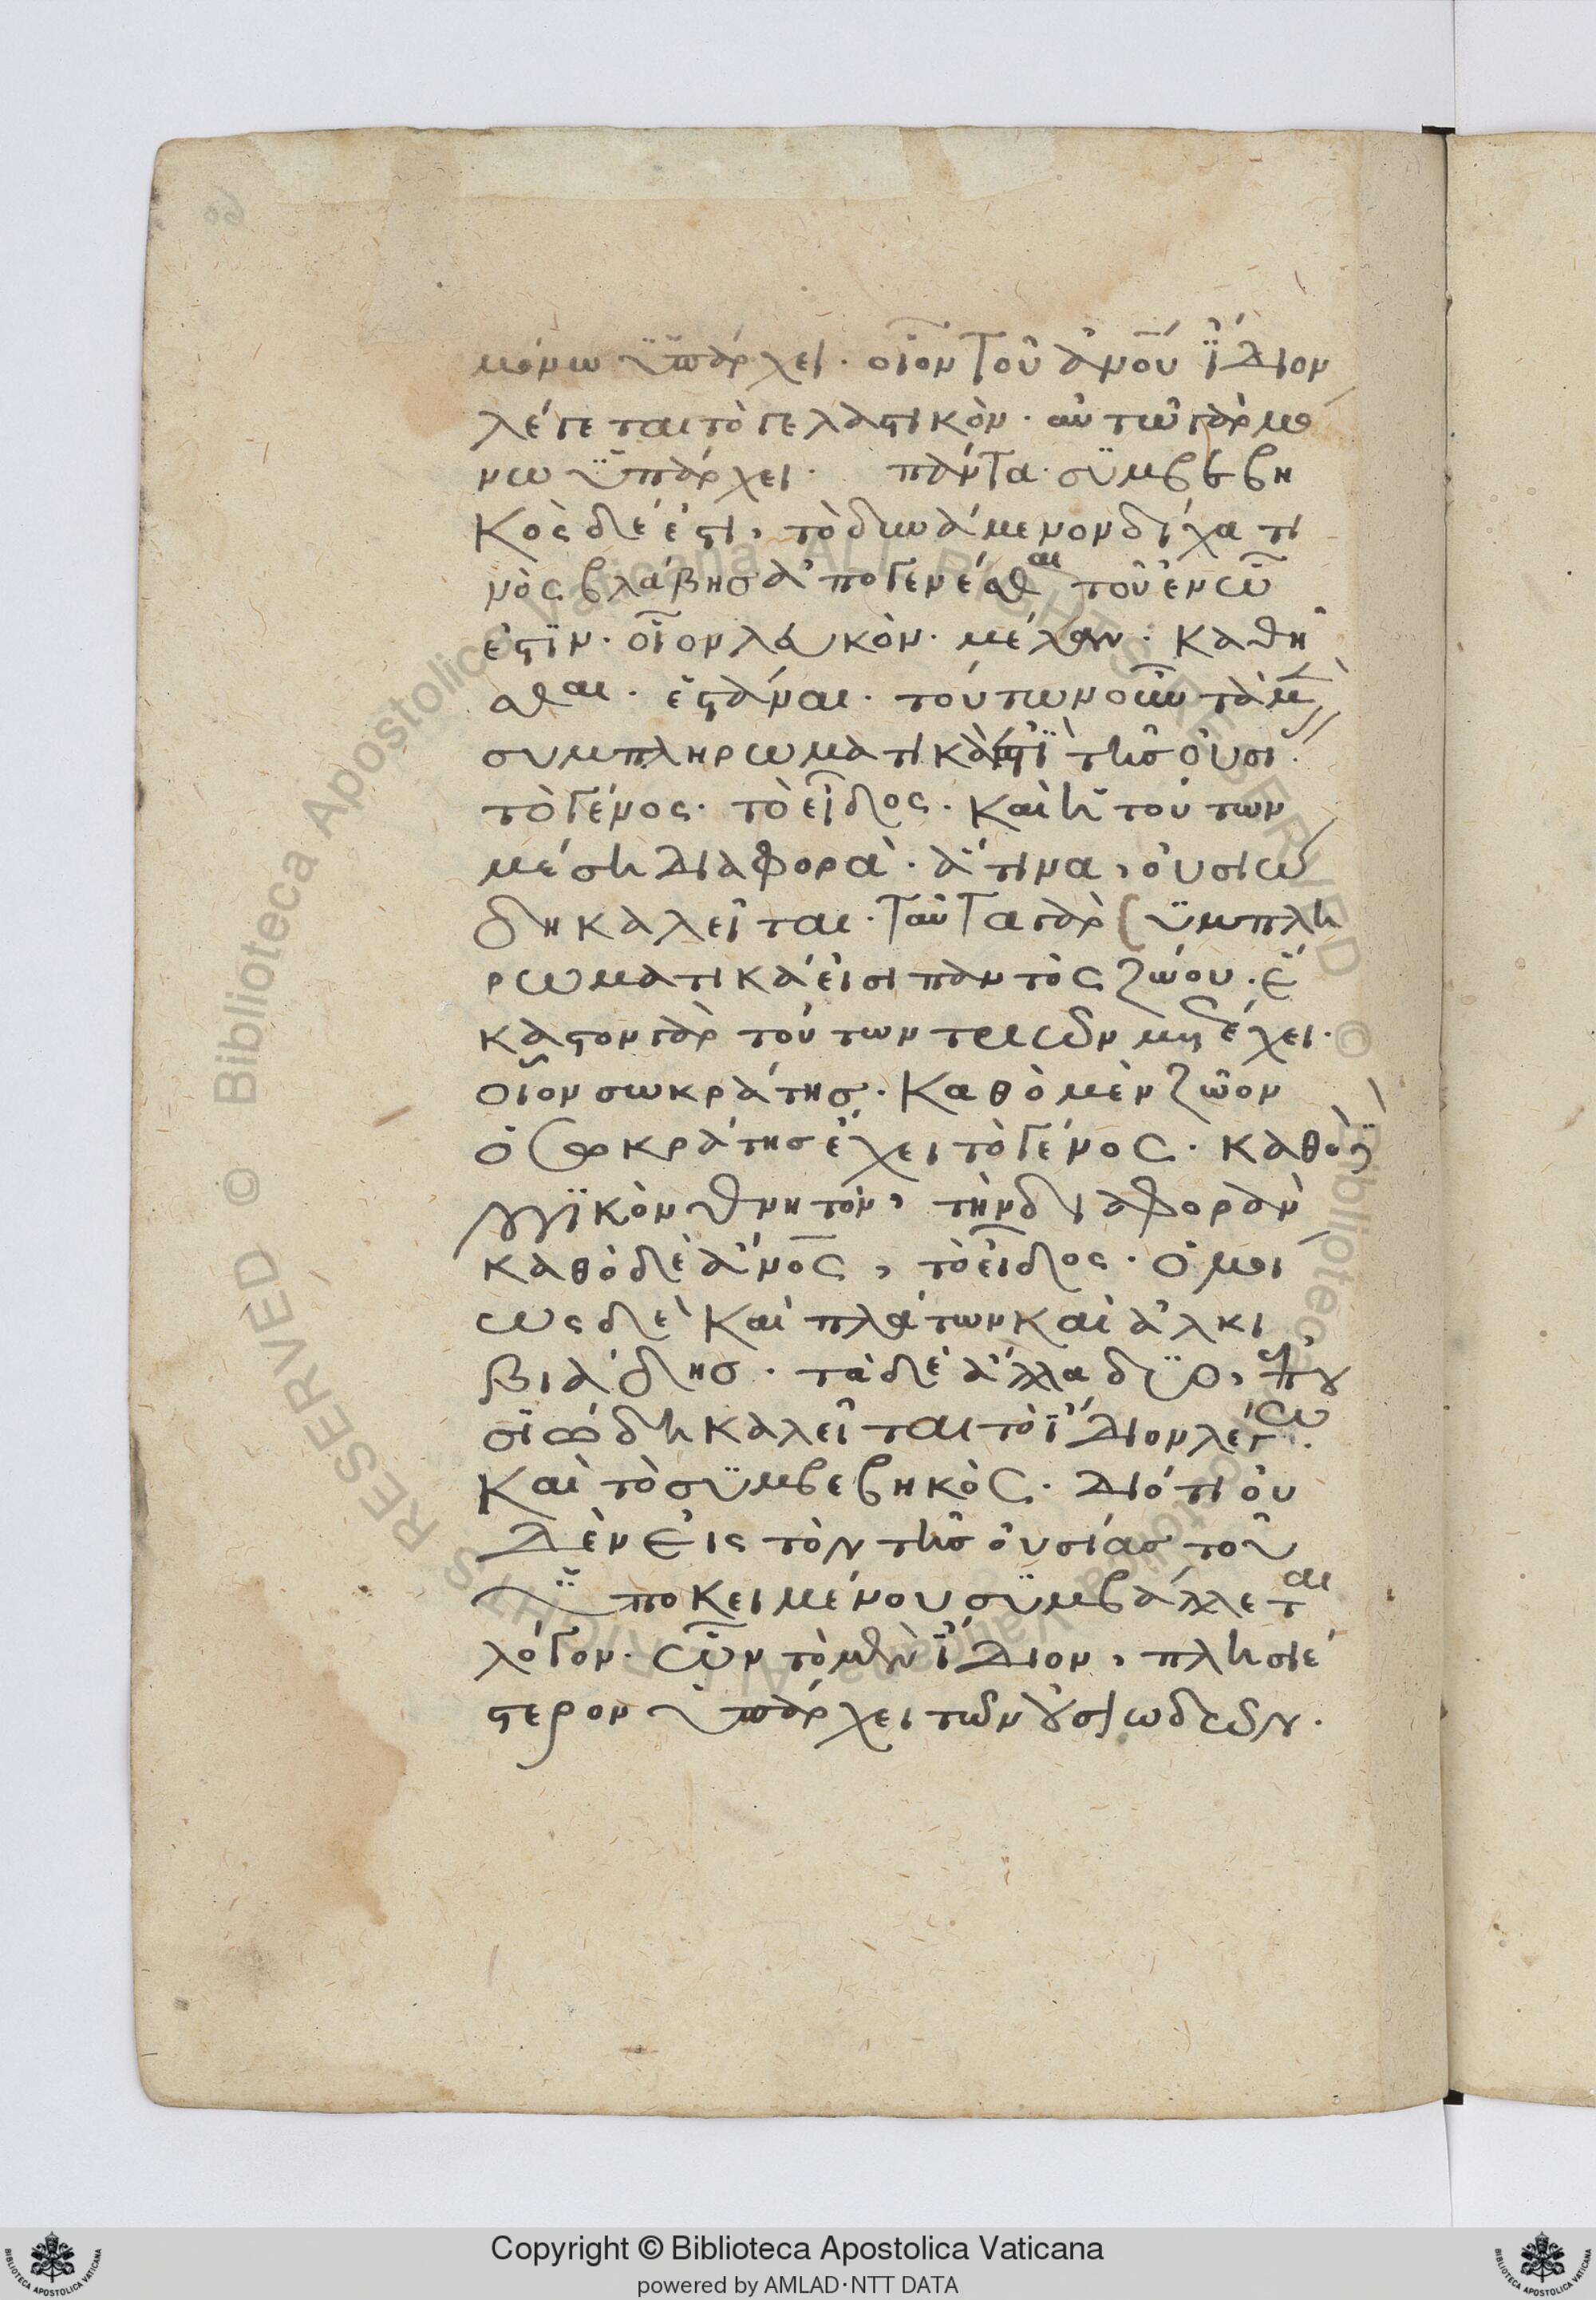 μόνω ὑπάρχει· οἷον τοῦ ἀνου ἴδιον
λέγεται τὸ γελαστικὸν· αὐτῶ γὰρ μό
νω ὑπάρχει· πάντα· συμβεβη
κὸς δέ ἐστι, τὸ δυνάμενον δίχα τι
νὸς βλάβης ἀπογενέσθαι τοῦ ἐν ὧ
ἐστϊν· οἷον λευκὸν· μέλαν· καθῆ
σθαι· ἑστάναι· τούτων οὖν τὰ μ
συμπληρωματικὰ τῆς οὐσι
τὸ γένος· τὸ εἶδος· καὶ ἡ τούτων
μέση διαφορὰ· ἅτινα, οὐσιώ
δη καλεῖται· ταῦτα γὰρ συμπλη
ρωματικά εἰσι παντὸς ζώου· ἕ
καστον γὰρ τούτων τριῶν μετέχει·
οἷον σωκράτης· καθὸ μὲν ζῶον
ὁ σωκράτης ἔχει τὸ γένος· καθὸ
λογϊκὸν θνητὸν, τὴν διαφορὰν
καθὸ δὲ ἄνος, τὸ εἶδος· ὁμοί
ως δὲ καὶ πλάτων καὶ ἀλκι
βιάδης· τὰ δὲ ἄλλα δύο,
σϊώδη καλεῖται τὸ ἴδιον λέγω·
καὶ τὸ συμβεβηκὸς· διότι οὐ
δὲν εἰς τὸν τῆς οὐσίας τοῦ
ὑποκειμένου συμβάλλεται
λόγον· ὧν τὸ μὲν ἴδιον, πλησιέ
στερον ὑπάρχει τῶν οὐσιωδῶν·
Copyright © Biblioteca Apostolica Vaticana
powered by AMLAD·NTT DATA